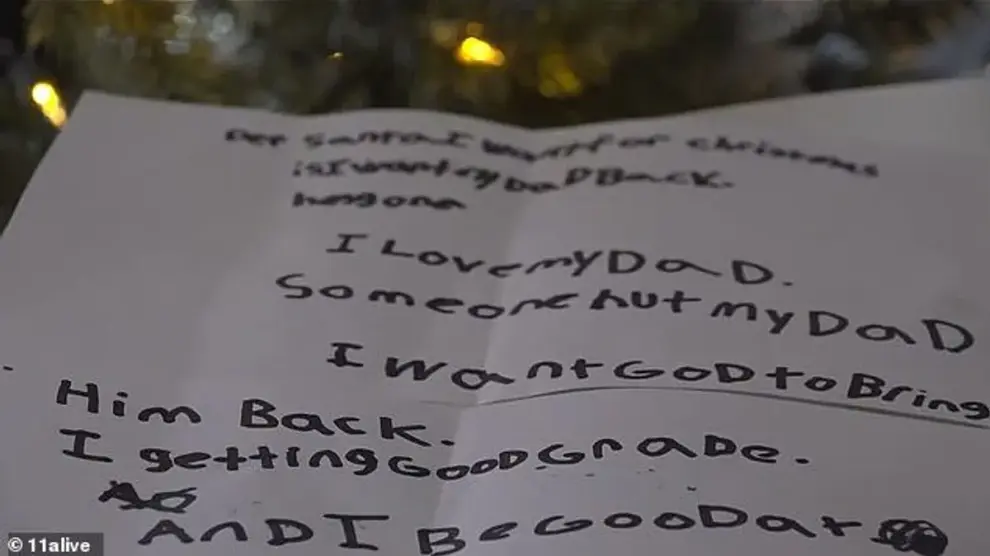 Der Santa I Want for christmas
is I want my DaD Back.
hes gone
I Love my DaD.
Someone hut my DaD
I want GoD to Bring
Him Back.
I getting GooD GraDe.
AnD I Be GooD at
© 11alive